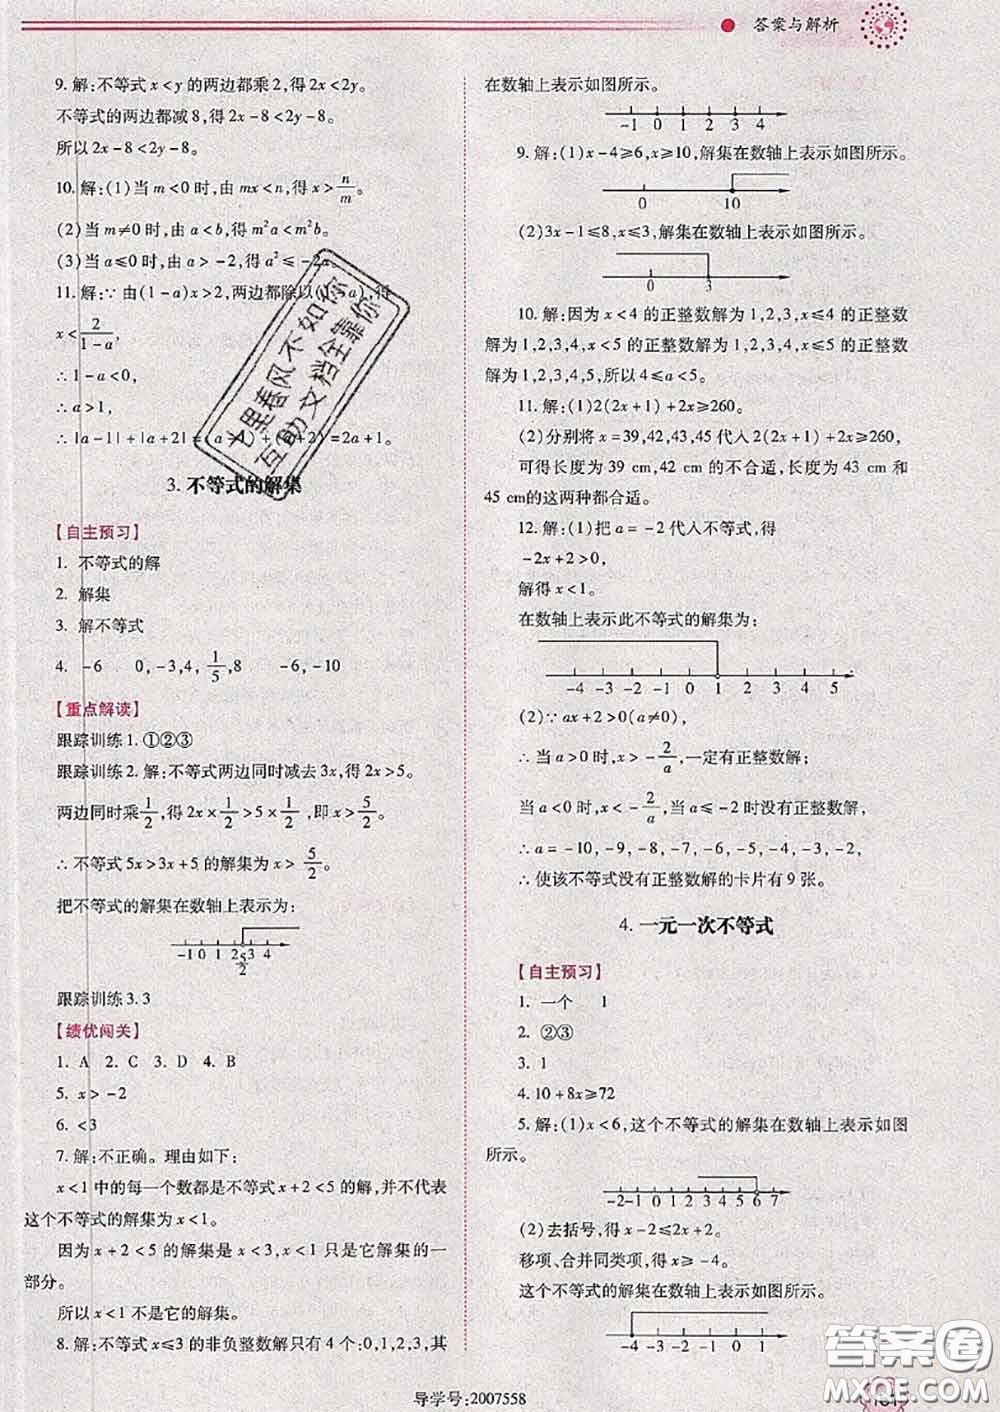 答案与解析
9. 解:不等式 x<y 的两边都乘2,得 2x<2y。
不等式的两边都减 8,得 2x-8<2y-8。
所以 2x-8<2y-8。
10. 解:(1)当 m<0 时,由 mx<n,得 x>n/m。
(2)当 m≠0 时,由 a<b,得 m²a<m²b。
(3)当 a≤0 时,由 a>-2,得 a²≤-2a。
11. 解:∵由(1-a)x>2,两边都除以(1-a),得
x<2/(1-a),
∴1-a<0,
∴a>1,
∴|a-1|+|a+2|=(a-1)+(a+2)=2a+1。
七里春风不如你
互助文档全靠你
3. 不等式的解集
【自主预习】
1. 不等式的解
2. 解集
3. 解不等式
4. -6 0,-3,4,1/5,8 -6,-10
【重点解读】
跟踪训练1. ①②③
跟踪训练2. 解:不等式两边同时减去 3x,得 2x>5。
两边同时乘1/2,得 2x×1/2>5×1/2,即 x>5/2。
∴不等式 5x>3x+5 的解集为 x>5/2。
把不等式的解集在数轴上表示为:
-1 0 1 2 5/2 3 4
跟踪训练3. 3
【绩优闯关】
1. A 2. C 3. D 4. B
5. x>-2
6. <3
7. 解:不正确。理由如下:
x<1 中的每一个数都是不等式 x+2<5 的解,并不代表
这个不等式的解集为 x<1。
因为 x+2<5 的解集是 x<3,x<1 只是它解集的一
部分。
所以 x<1 不是它的解集。
8. 解:不等式 x≤3 的非负整数解只有 4 个:0,1,2,3,其
在数轴上表示如图所示。
-1 0 1 2 3 4
9. 解:(1)x-4≥6,x≥10,解集在数轴上表示如图所示。
0 10
(2)3x-1≤8,x≤3,解集在数轴上表示如图所示。
0 3
10. 解:因为 x<4 的正整数解为 1,2,3,x≤4 的正整数
解为 1,2,3,4,x<5 的正整数解为 1,2,3,4,x≤5 的正整数
解为 1,2,3,4,5,所以 4≤a<5。
11. 解:(1)2(2x+1)+2x≥260。
(2)分别将 x=39,42,43,45 代入 2(2x+1)+2x≥260,
可得长度为 39 cm,42 cm 的不合适,长度为 43 cm 和
45 cm的这两种都合适。
12. 解:(1)把 a=-2代入不等式,得
-2x+2>0,
解得 x<1。
在数轴上表示此不等式的解集为:
-4 -3 -2 -1 0 1 2 3 4 5
(2)∵ax+2>0(a≠0),
∴当 a>0时,x>-2/a,一定有正整数解;
当 a<0 时,x<-2/a,当 a≤-2时没有正整数解,
∴a=-10,-9,-8,-7,-6,-5,-4,-3,-2,
∴使该不等式没有正整数解的卡片有 9 张。
4. 一元一次不等式
【自主预习】
1. 一个 1
2. ②③
3. 1
4. 10+8x≥72
5. 解:(1)x<6,这个不等式的解集在数轴上表示如图
所示。
-2-1 0 1 2 3 4 5 6 7
(2)去括号,得 x-2≤2x+2。
移项、合并同类项,得 x≥-4。
这个不等式的解集在数轴上表示如图所示。
-4 -3 -2 -1 0 1 2
答案圈
MXQE.COM
导学号:2007558